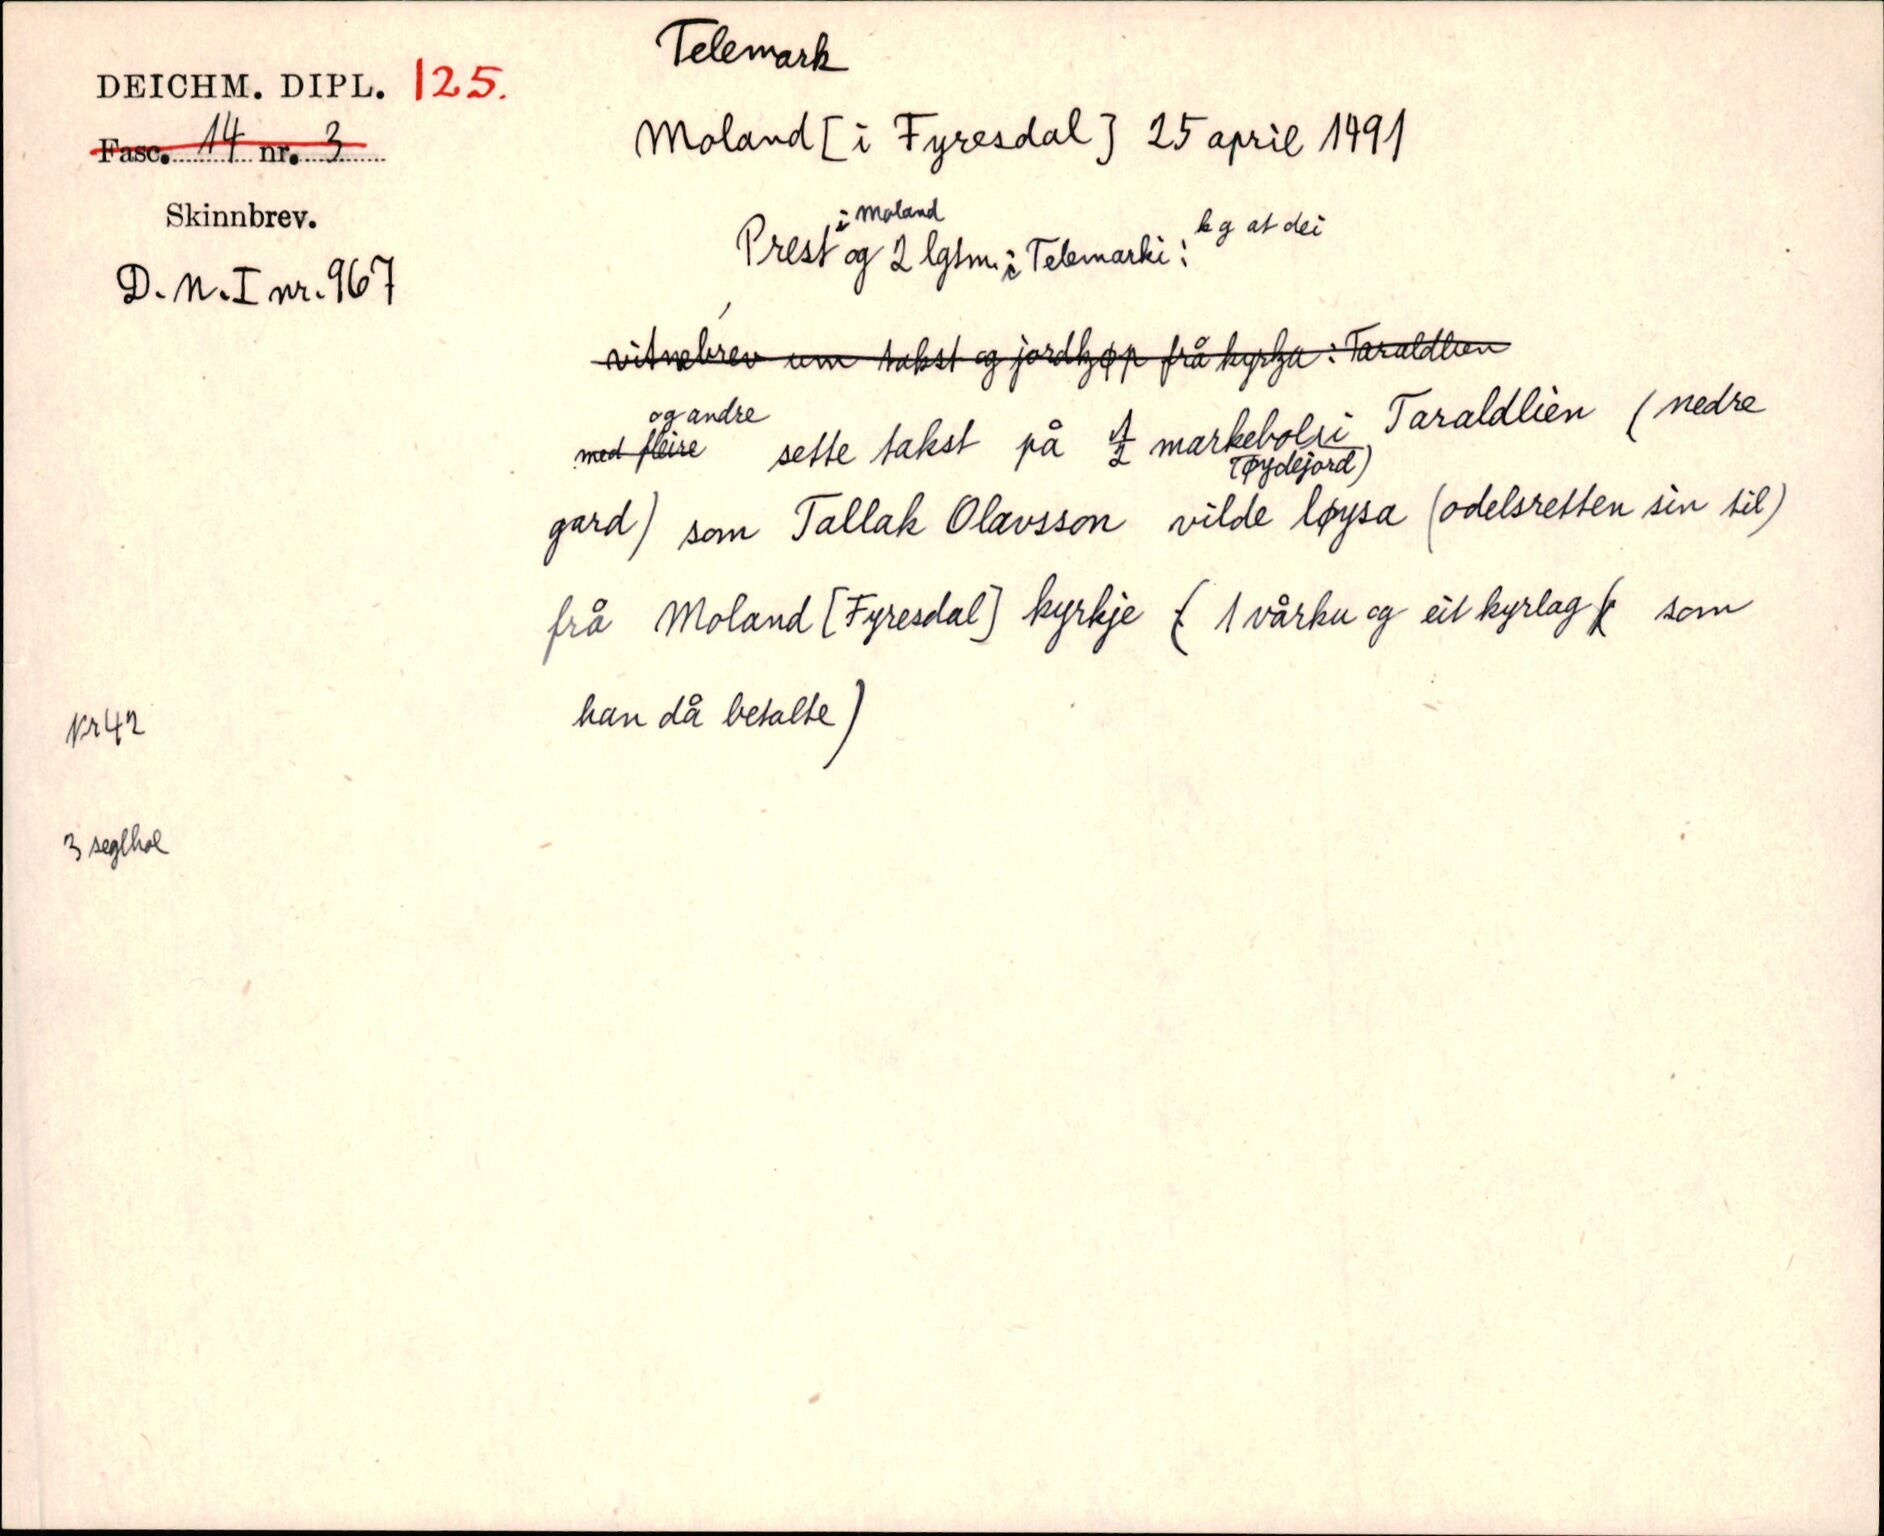 Telemark
DEICHM. DIPL. 125.
Fasc. 14 nr. 3
Moland [i Fyresdal] 25 april 1491
Skinnbrev.
i Moland
Prest og 2 lgtm. i Telemarki: kg at dei
D. N. I nr. 967
vitnebrev um takst og jordkjøp frå kyrkja: Taraldlien
og andre
med fleire sette takst på 1/2 markebol i Taraldlien (nedre
(øydejord)
gard) som Tallak Olavsson vilde løysa (odelsretten sin til)
frå Moland [Fyresdal] kyrkje (1 vårku og eit kyrlag som
han då betalte)
Nr 42
3 seglhol